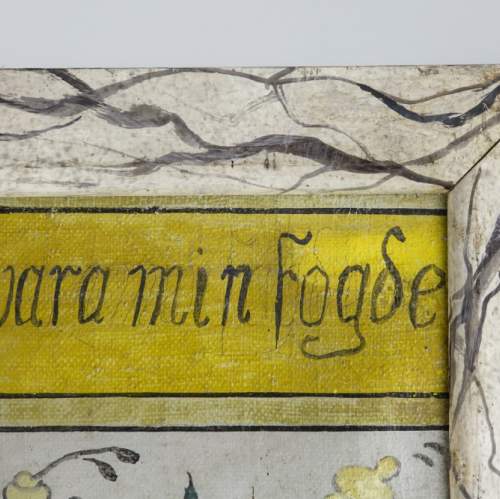 vara min Fogde